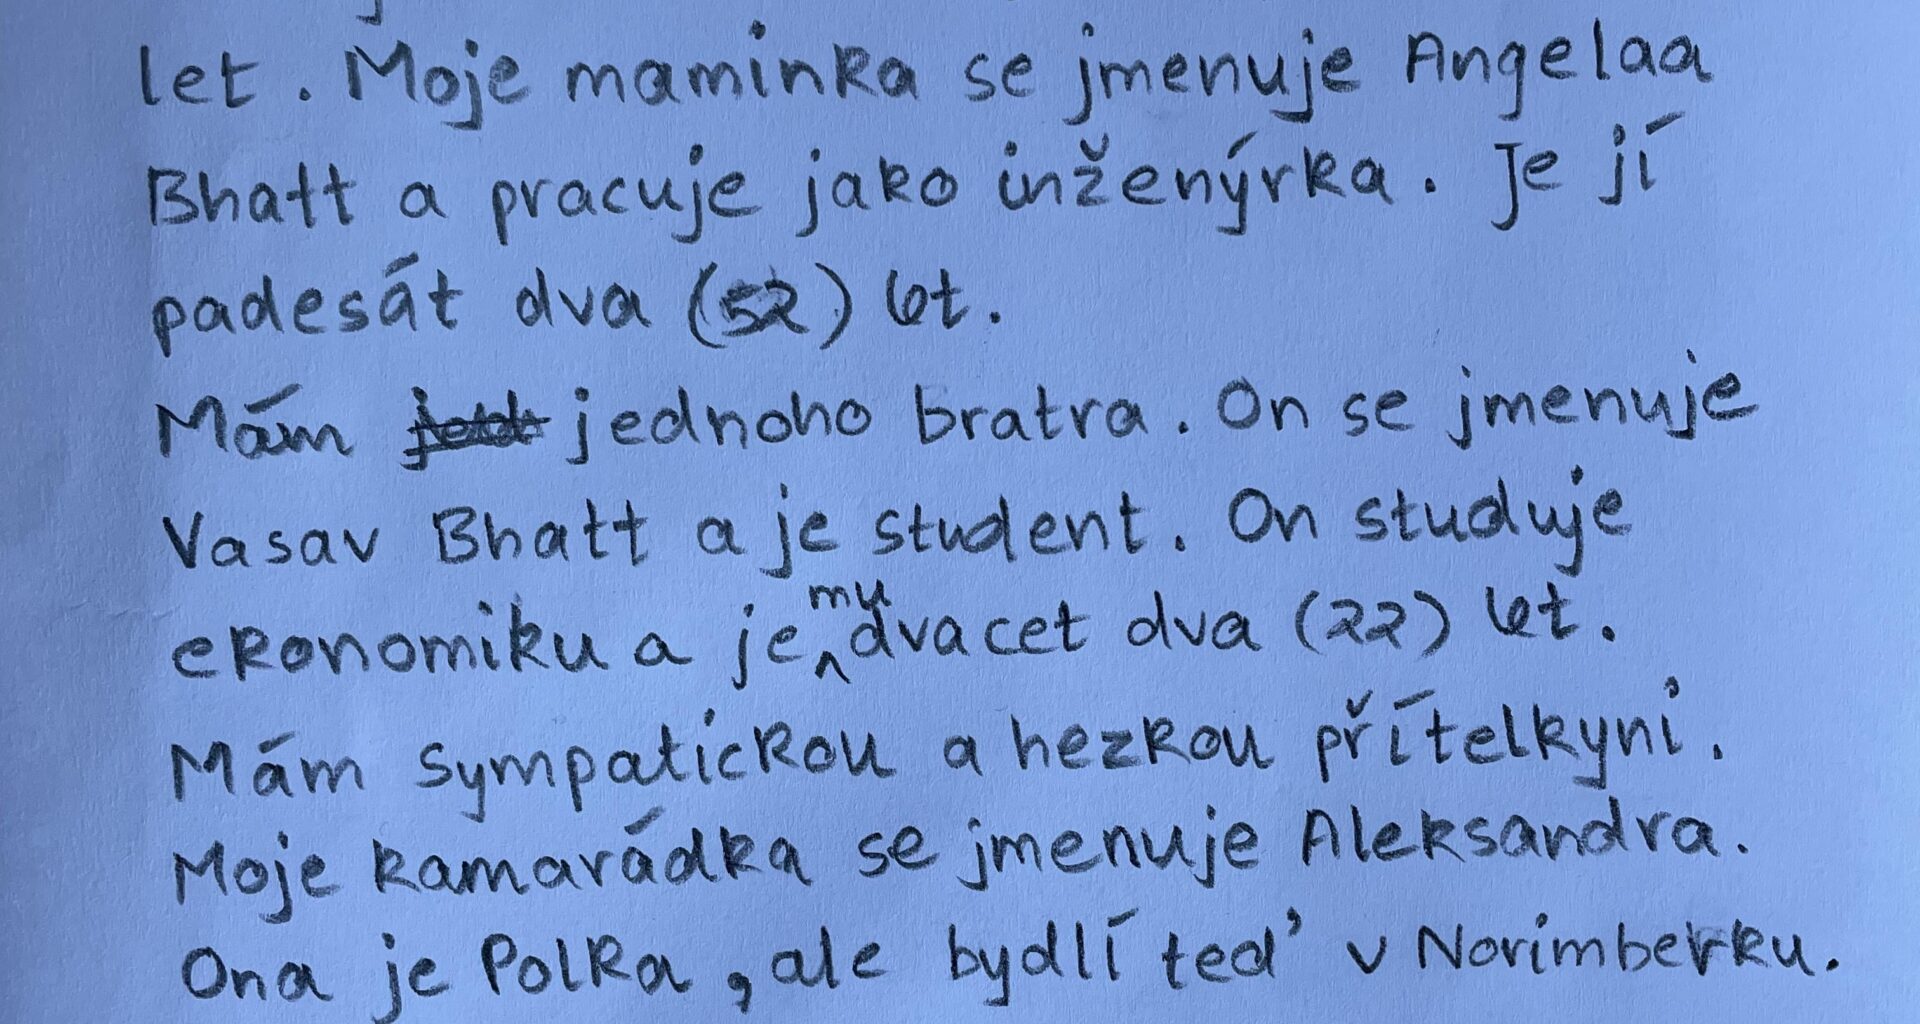 let. Moje maminka se jmenuje Angelaa
Bhatt a pracuje jako inženýrka. Je jí
padesát dva (52) let.
Mám jednoho bratra. On se jmenuje
Vasav Bhatt a je student. On studuje
ekonomiku a je mu dvacet dva (22) let.
Mám sympatickou a hezkou přítelkyni.
Moje kamarádka se jmenuje Aleksandra.
Ona je Polka, ale bydlí teď v Norimberku.